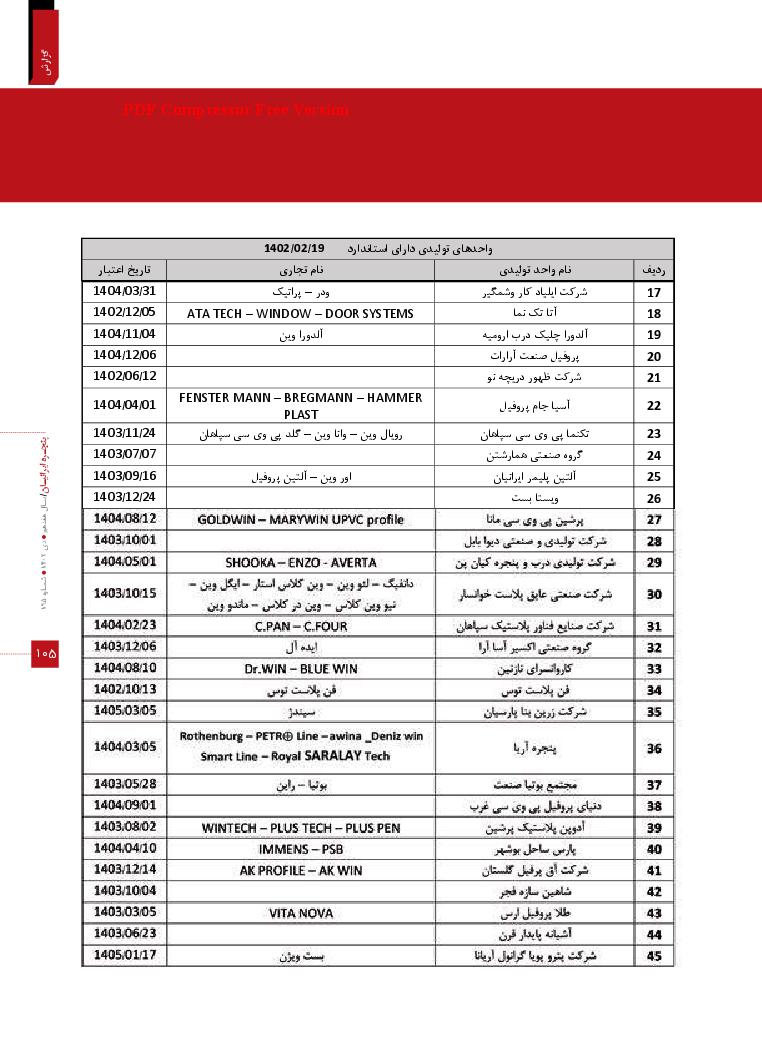 گزارش
PDF Compressor Free Version
واحدهای تولیدی دارای استاندارد 1402/02/19
ردیف نام واحد تولیدی نام تجاری تاریخ اعتبار
17 شرکت ایلیاد کار وشمگیر ودر – پراتیک 1404/03/31
18 آتا تک نما ATA TECH – WINDOW – DOOR SYSTEMS 1402/12/05
19 آلدورا چلیک درب ارومیه آلدورا وین 1404/11/04
20 پروفیل صنعت آرارات 1404/12/06
21 شرکت ظهور دریچه نو 1402/06/12
22 آسیا جام پروفیل FENSTER MANN – BREGMANN – HAMMER
PLAST 1404/04/01
23 تکنما پی وی سی سپاهان رویال وین – وانا وین – گلد پی وی سی سپاهان 1403/11/24
24 گروه صنعتی همارشتن 1403/07/07
25 آلتین پلیمر ایرانیان اور وین – آلتین پروفیل 1403/09/16
26 ویستا بست 1403/12/24
27 پرشین پی وی سی مانا GOLDWIN – MARYWIN UPVC profile 1404/08/12
28 شرکت تولیدی و صنعتی دیوا بابل 1403/10/01
29 شرکت تولیدی درب و پنجره کیان پن SHOOKA – ENZO - AVERTA 1404/05/01
30 شرکت صنعتی عایق پلاست خوانسار دانفیگ – لئو وین – وین کلاس استار – ایگل وین –
نیو وین کلاس – وین در کلاس – ماندو وین 1403/10/15
31 شرکت صنایع فناور پلاستیک سپاهان C.PAN – C.FOUR 1404/02/23
32 گروه صنعتی اکسیر آسا آرا ایده آل 1403/12/06
33 کاروانسرای نازنین Dr.WIN – BLUE WIN 1404/08/10
34 فن پلاست توس فن پلاست توس 1402/10/13
35 شرکت زرین بنا پارسیان سیندژ 1405/03/05
36 پنجره آریا Rothenburg – PETR⊕ Line – awina _Deniz win
Smart Line – Royal SARALAY Tech 1404/03/05
37 مجتمع بوتیا صنعت بوتیا – راین 1403/05/28
38 دنیای پروفیل پی وی سی غرب 1404/09/01
39 آدوپن پلاستیک پرشین WINTECH – PLUS TECH – PLUS PEN 1403/08/02
40 پارس ساحل بوشهر IMMENS – PSB 1404/04/10
41 شرکت آق پرفیل گلستان AK PROFILE – AK WIN 1403/12/14
42 شاهین سازه فجر 1403/10/04
43 طلا پروفیل ارس VITA NOVA 1403/03/05
44 آشیانه پایدار قرن 1403/06/23
45 شرکت پترو پویا گرانول آریانا بست ویژن 1405/01/17
پنجره ایرانیان/سال هفدهم ● دی ۱۴۰۲ ● شماره ۱۹۵
۱۰۵